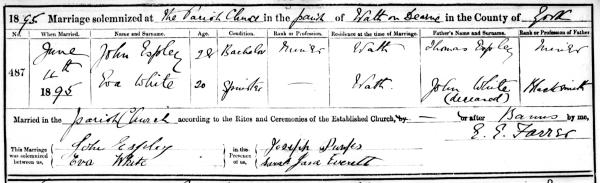 1895 Marriage solemnized at the Parish Church in the parish of Wath on Dearne in the County of York
No. When Married. Name and Surname. Age. Condition. Rank or Profession. Residence at the time of Marriage. Father's Name and Surname. Rank or Profession of Father
487 June 4th 1895 John Espley Bachelor Miner Wath Thomas Espley Miner
Eva White 20 Spinster — Wath John White (deceased) Blacksmith
Married in the Parish Church according to the Rites and Ceremonies of the Established Church, by — or after Banns by me,
This Marriage was solemnized between us, John Espley Eva White in the Presence of us, Joseph Sarah Jane Everett E. E. Farrer